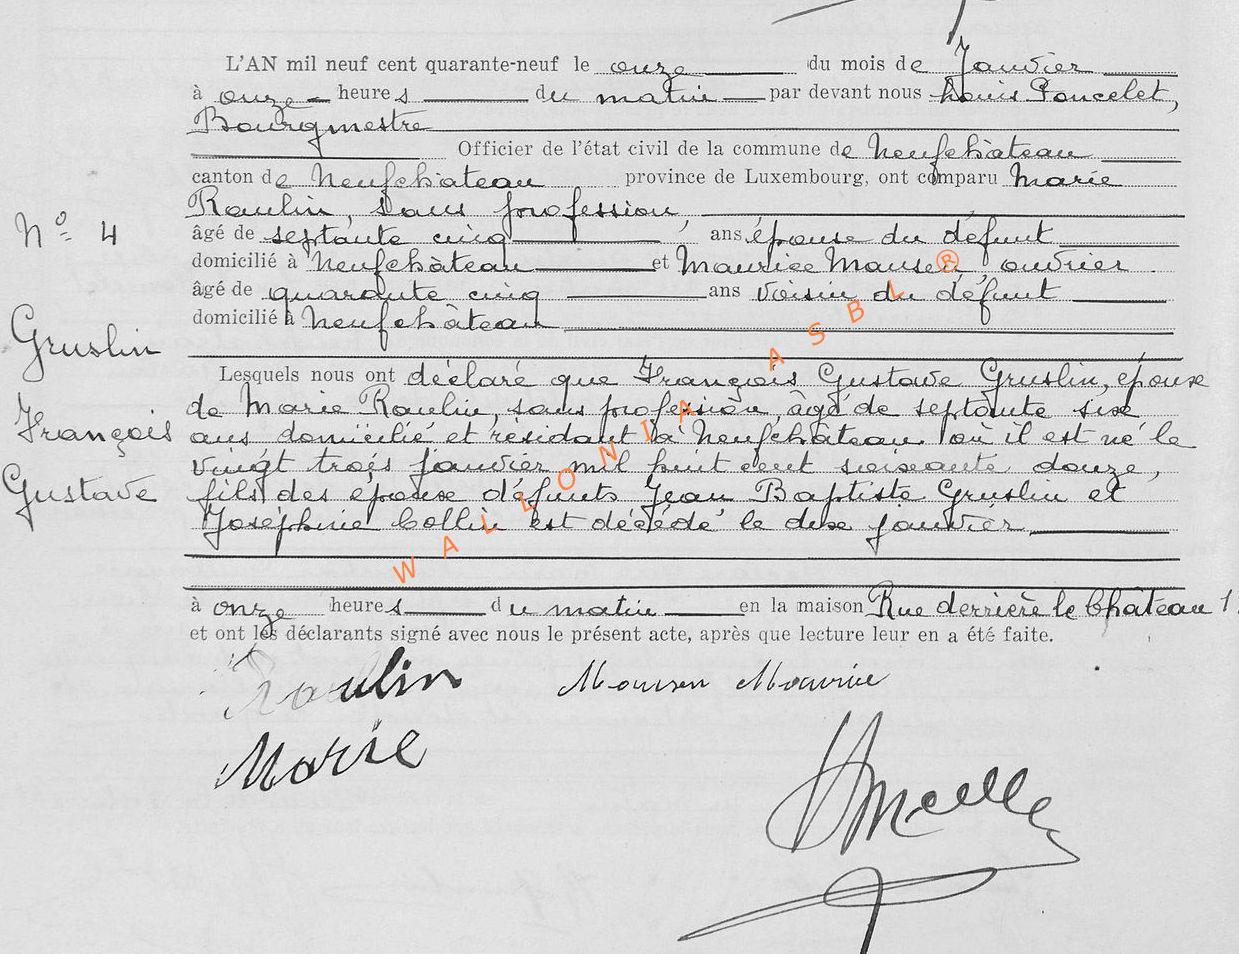 L'AN mil neuf cent quarante-neuf le onze du mois de Janvier
à onze heures du matin par devant nous Louis Poncelet,
Bourgmestre
Officier de l'état civil de la commune de Neufchâteau
canton de Neufchâteau province de Luxembourg, ont comparu Marie
Raulin, sans profession,
âgé de septante cinq ans, épouse du défunt
domicilié à Neufchâteau et Maurice Mansen, ouvrier
âgé de quarante cinq ans voisin du défunt
domicilié à Neufchâteau
Nº 4
Gruslin
François
Gustave
Lesquels nous ont déclaré que François Gustave Gruslin, époux
de Marie Raulin, sans profession, âgé de septante six
ans domicilié et résidant à Neufchâteau où il est né le
vingt trois janvier mil huit cent soixante douze,
fils des époux défunts Jean Baptiste Gruslin et
Joséphine Collin est décédé le dix janvier
à onze heures du matin en la maison Rue derrière le Château
et ont les déclarants signé avec nous le présent acte, après que lecture leur en a été faite.
Raulin
Marie
Mansen Maurice
WALLONIA ASBL ®